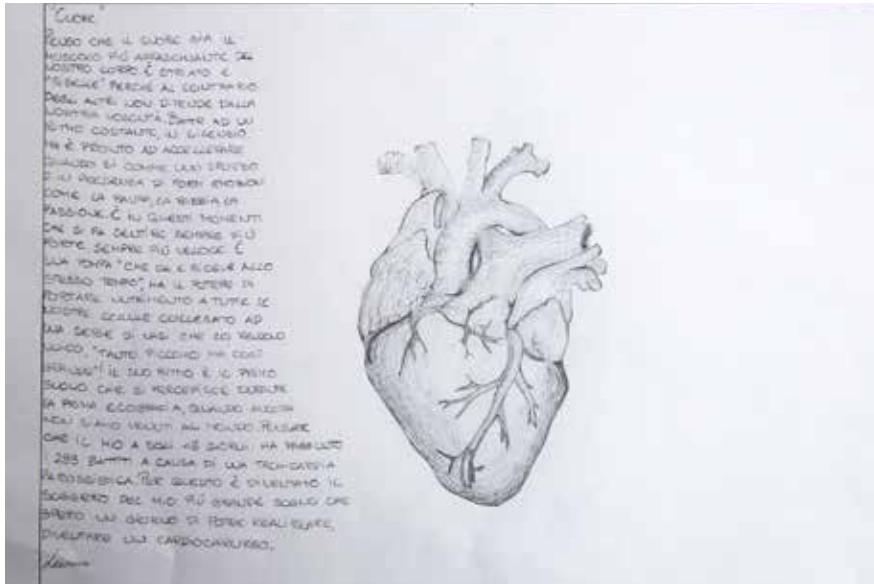 "CUORE"
PENSO CHE IL CUORE SIA IL
MUSCOLO PIÙ AFFASCINANTE DEL
NOSTRO CORPO È STRIATO E
"RIBELLE" PERCHÈ AL CONTRARIO
DEGLI ALTRI NON DIPENDE DALLA
NOSTRA VOLONTÀ. BATTE AD UN
RITMO COSTANTE, IN SILENZIO
MA È PRONTO AD ACCELLERARE
QUANDO SI COMPIE UNO SFORZO
O IN PRESENZA DI FORTI EMOZIONI
COME LA PAURA, LA RABBIA, LA
PASSIONE. È IN QUESTI MOMENTI
CHE SI FA SENTIRE SEMPRE PIÙ
FORTE SEMPRE PIÙ VELOCE. È
UNA POMPA "CHE DA E RICEVE ALLO
STESSO TEMPO", HA IL POTERE DI
PORTARE NUTRIMENTO A TUTTE LE
NOSTRE CELLULE COLLEGATO AD
UNA SERIE DI VASI CHE LO RENDONO
UNICO. "TANTO PICCOLO MA COSÌ
GRANDE"! IL SUO RITMO È IL PRIMO
SUONO CHE SI PERCEPISCE DURANTE
LA PRIMA ECOGRAFIA, QUANDO ANCORA
NON SIAMO VENUTI AL MONDO. PENSARE
CHE IL MIO A SOLI 18 GIORNI HA
293 BATTITI A CAUSA DI UNA TACHICARDIA
PAROSSISTICA. PER QUESTO È DIVENTATO IL
SOGGETTO DEL MIO PIÙ GRANDE SOGNO CHE
SPERO UN GIORNO DI POTER REALIZZARE,
DIVENTARE UN CARDIOCHIRURGO.